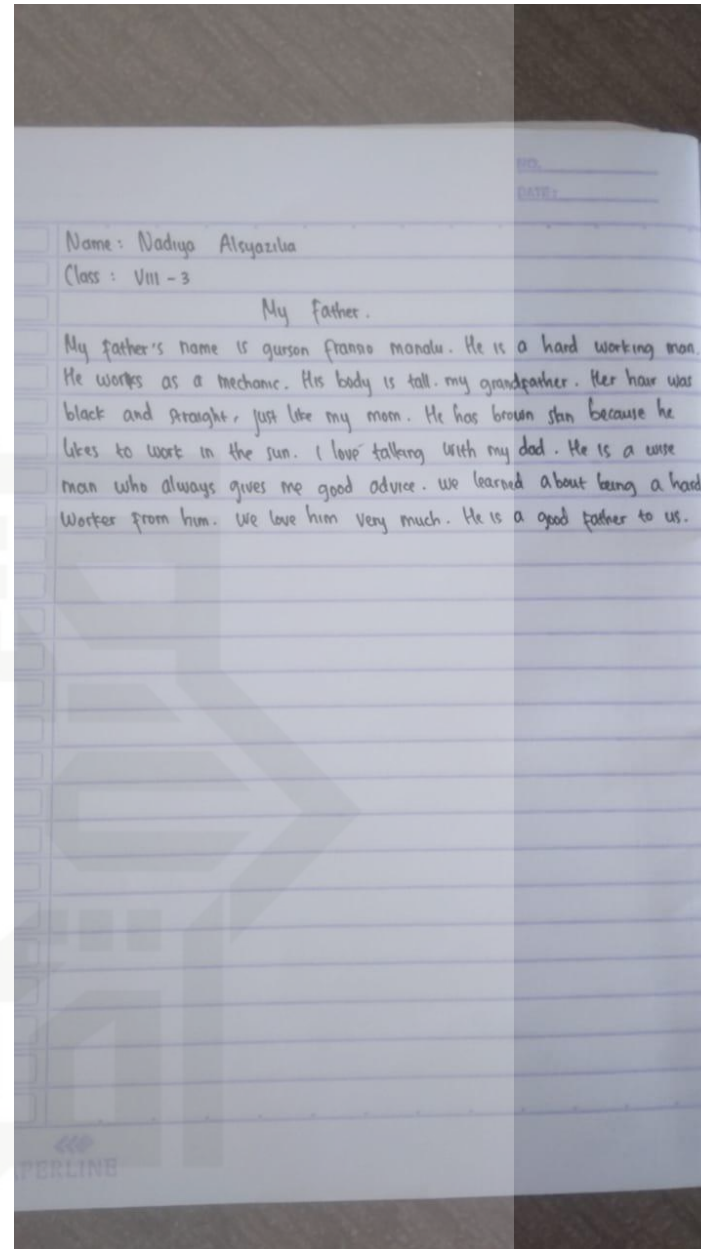 NO.
DATE:
Name: Nadiya Alsyazilia
Class : VIII - 3
My Father.
My father's name is gurson franno manalu. He is a hard working man.
He works as a mechanic. His body is tall. my grandfather. Her hair was
black and straight, just like my mom. He has brown skin because he
likes to work in the sun. I love talking with my dad. He is a wise
man who always gives me good advice. we learned about being a hard
Worker from him. We love him very much. He is a good father to us.
PERLINE